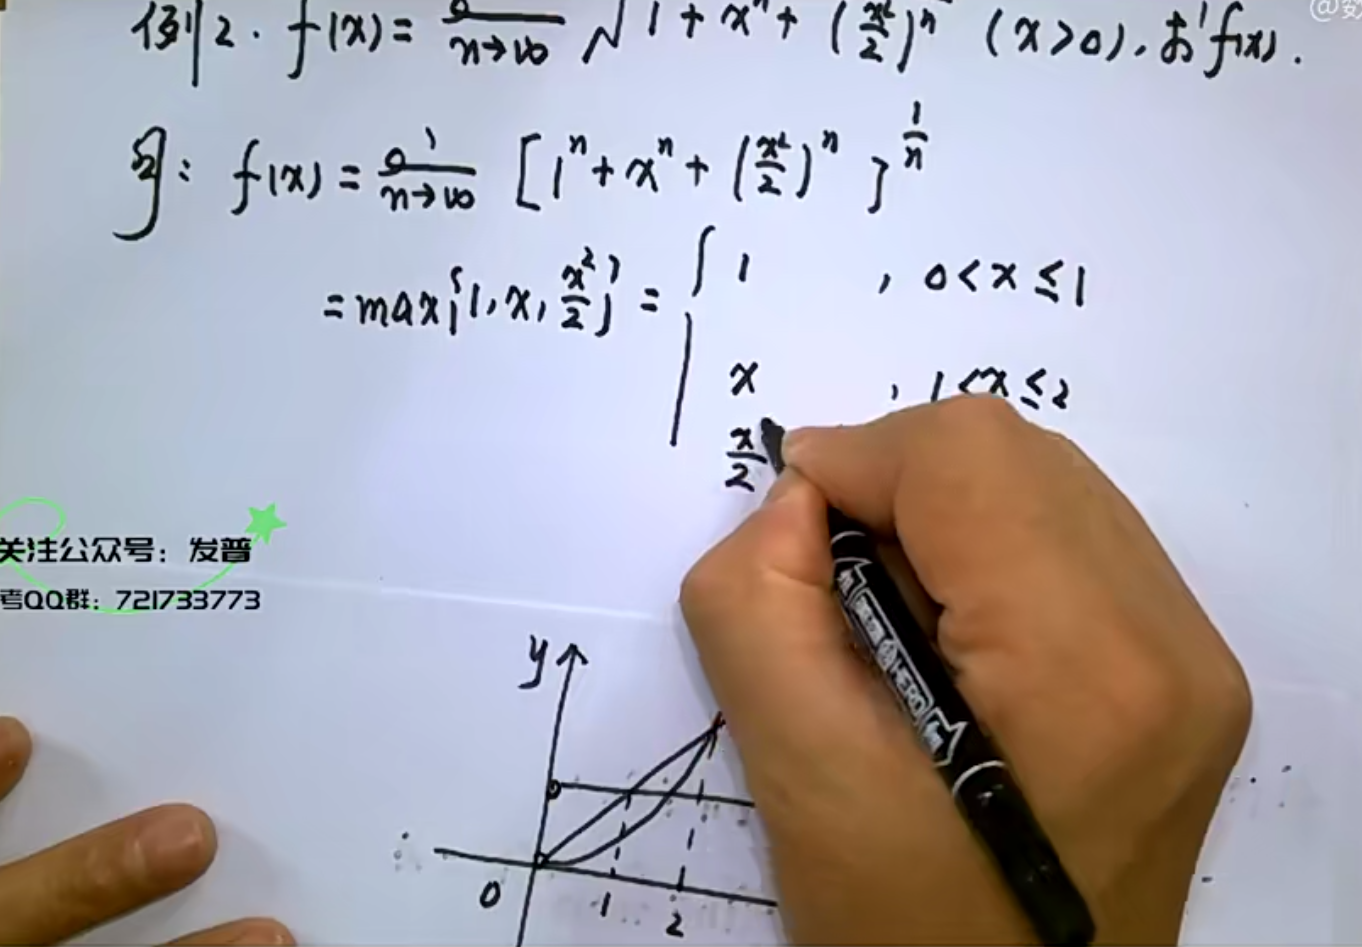 @数
例2. f(x)= lim n→∞ √1+x^n+(x²/2)^n (x>0), 求f(x).
解: f(x)= lim n→∞ [1^n+x^n+(x²/2)^n]^(1/n)
=max{1,x,x²/2}= { 1 , 0<x≤1
x , 1<x≤2
x/2
关注公众号：发普
考QQ群：721733773
y
0 1 2
HERO